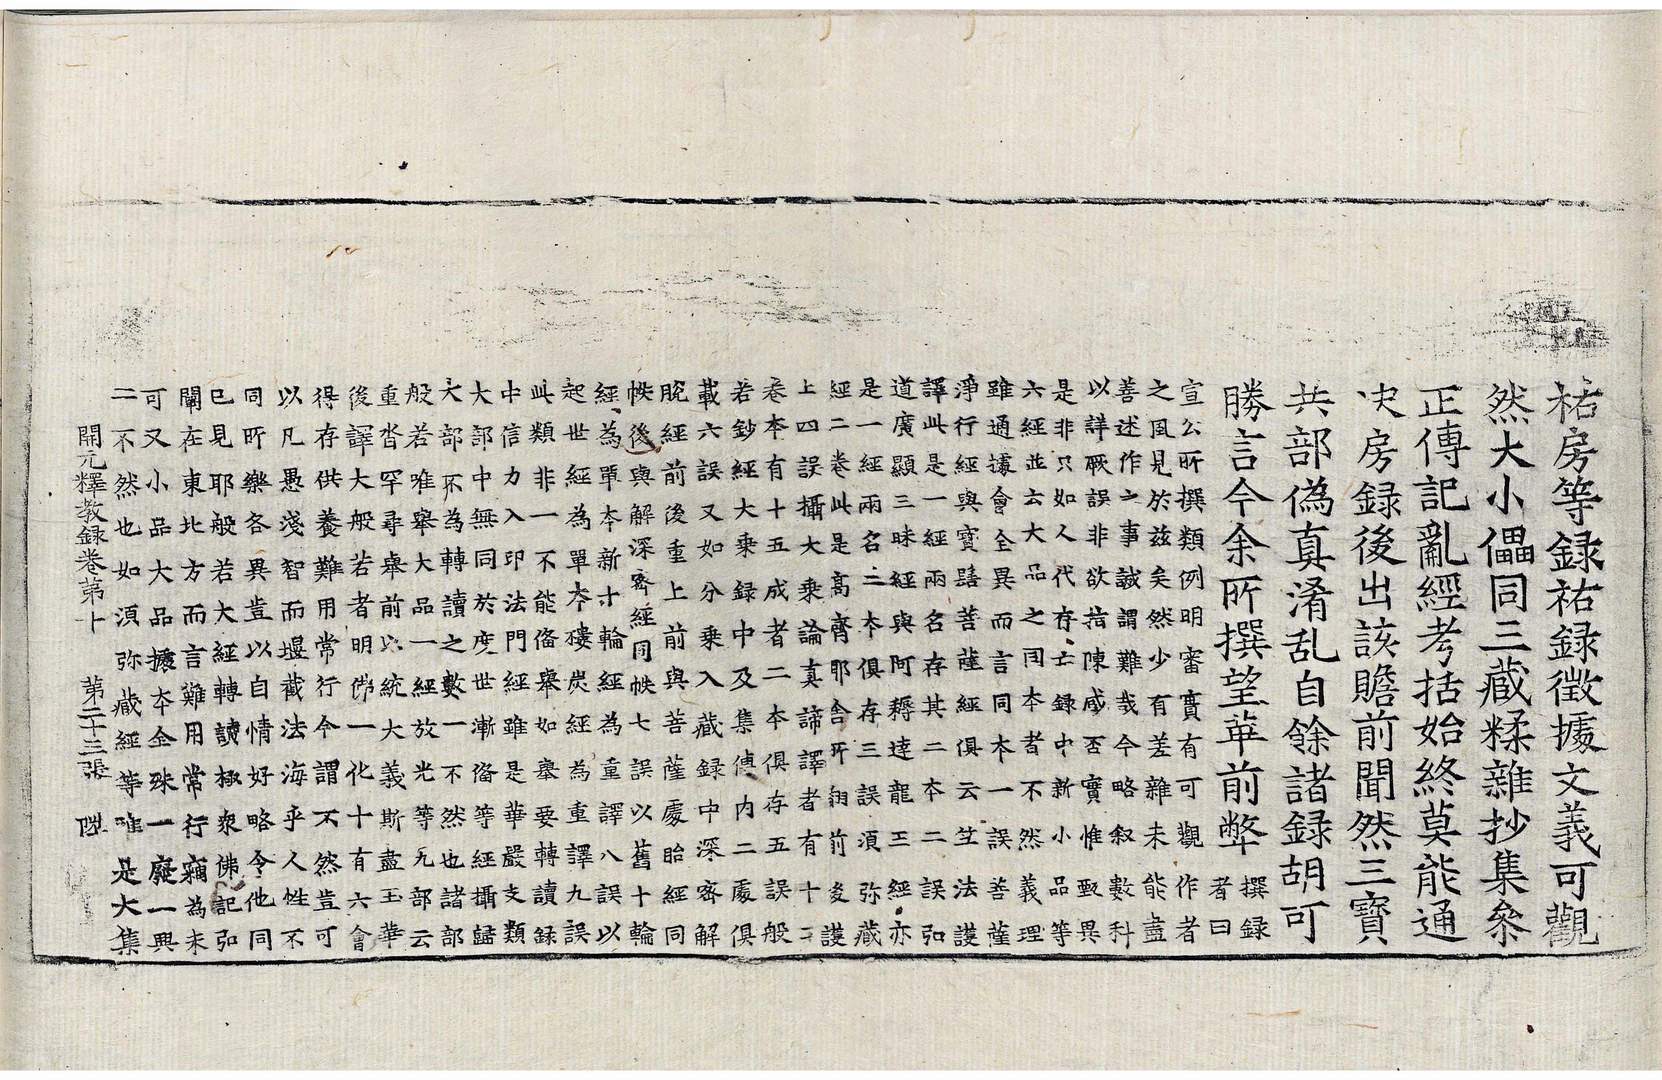 祐房等録祐録徵據文義可觀
然大小儡同三藏糅雜抄集叅
正傳記亂經考括始終莫能通
决房録後出該贍前聞然三寳
共部偽真淆乱自餘諸録胡可
勝言今余所撰望革前弊撰録者曰
宣公所撰類例明審實有可觀作者
之風見於兹矣然少有差雜未能盡
善述作之事誠謂難哉今略叙數科
以詳厥誤非欲指陳咸否實惟甄異
是非只如人代存亡録中新小品等
六經並云大品之同本者不然義理
雖通據會全異而言同本一誤善薩
淨行經與寳菩薩經俱云竺法護
譯此是一經兩名存其二本二誤弘
道廣顯三昧經與阿耨達龍王經亦
是一經兩名二本俱存三誤湏弥藏
經二卷此是高齊耶舍所翻前後護
上四誤攝大乗論真諦譯者有十二
卷本有十五成者二本俱存五誤般
若鈔經大乗録中及集傳内二處俱
載六誤又如分乗入藏録中深密解
脫經前後重上前與菩薩處胎經同
帙後與解深密經同帙七誤以舊十輪
經為單本新十輪經為重譯八誤以
起世經為單本樓炭經為重譯九誤
此類非一不能俻舉如舉要轉讀録
中信力入印法門經雖是華嚴支類
大部中無同於度世漸俻等經攝歸
大部不為轉讀之數一不然也諸部
般若唯舉大品一經放光等九部云
重沓罕尋舉前以統大義斯盡玉華
後譯大般若者明佛一化十有六會
得存供養難用常行今謂不然豈可
以凡愚淺智而堰截法海乎人性不
同所樂各異豈以自情好略令他同
已見耶般若大經轉讀極衆佛記弘
闡在東北方而言難用常行竊為未
可又小品大品據本全殊一廢一興
二不然也如湏弥藏經等唯是大集
開元釋教録卷第十　第二十三張